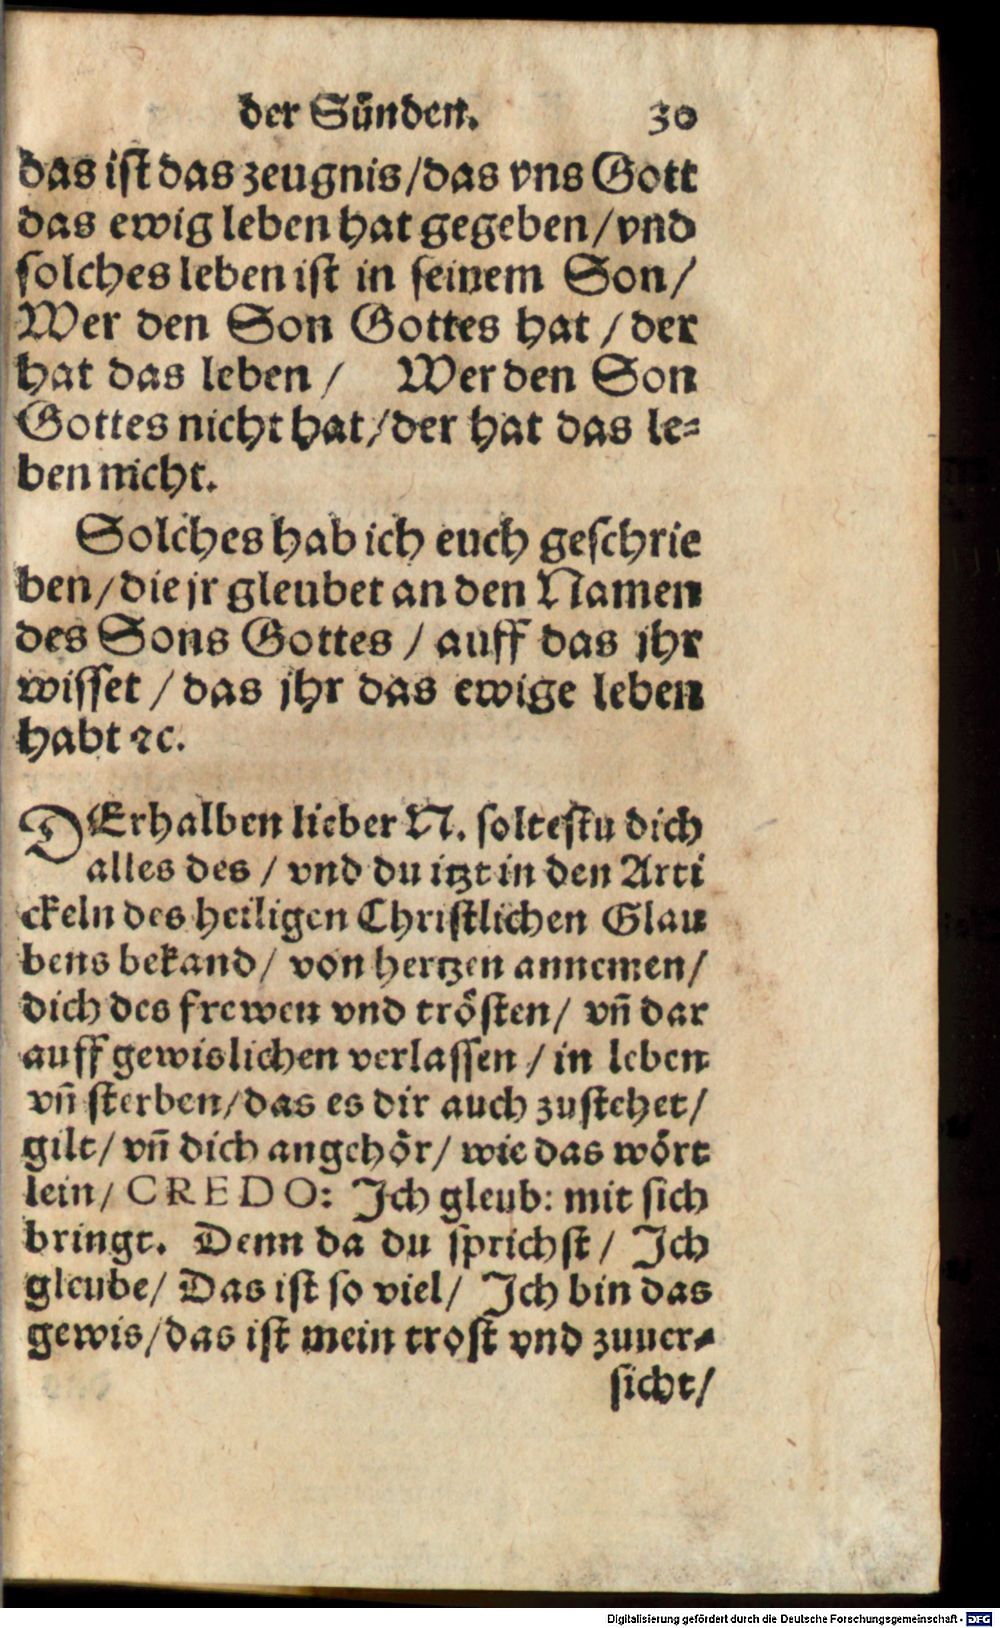 der Sünden. 30
das ist das zeugnis/das vns Gott
das ewig leben hat gegeben/vnd
solches leben ist in seinem Son/
Wer den Son Gottes hat / der
hat das leben / Wer den Son
Gottes nicht hat/der hat das le-
ben nicht.
Solches hab ich euch geschrie
ben/die jr gleubet an den Namen
des Sons Gottes / auff das jhr
wisset / das jhr das ewige leben
habt ꝛc.
DErhalben lieber N. soltestu dich
alles des / vnd du itzt in den Arti
ckeln des heiligen Christlichen Glau
bens bekand/ von hertzen annemen/
dich des frewen vnd trösten/ vñ dar
auff gewislichen verlassen / in leben
vñ sterben/das es dir auch zustehet/
gilt/ vñ dich angehör/ wie das wört
lein/ CREDO: Jch gleub: mit sich
bringt. Denn da du sprichst/ Jch
gleube/ Das ist so viel/ Jch bin das
gewis/das ist mein trost vnd zuuer-
sicht/
Digitalisierung gefördert durch die Deutsche Forschungsgemeinschaft - DFG